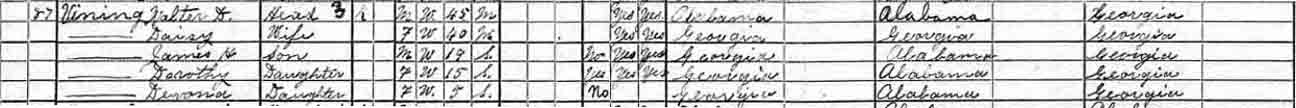 87 Vining Walter D. Head 3 R M W 45 M Yes Yes Alabama Alabama Georgia
—— Daisy Wife F W 40 M Yes Yes Georgia Georgia Georgia
—— James H Son M W 19 S. No Yes Yes Georgia Alabama Georgia
—— Dorothy Daughter F W 15 S. Yes Yes Yes Georgia Alabama Georgia
—— Devona Daughter F W. 5 S. No Georgia Alabama Georgia